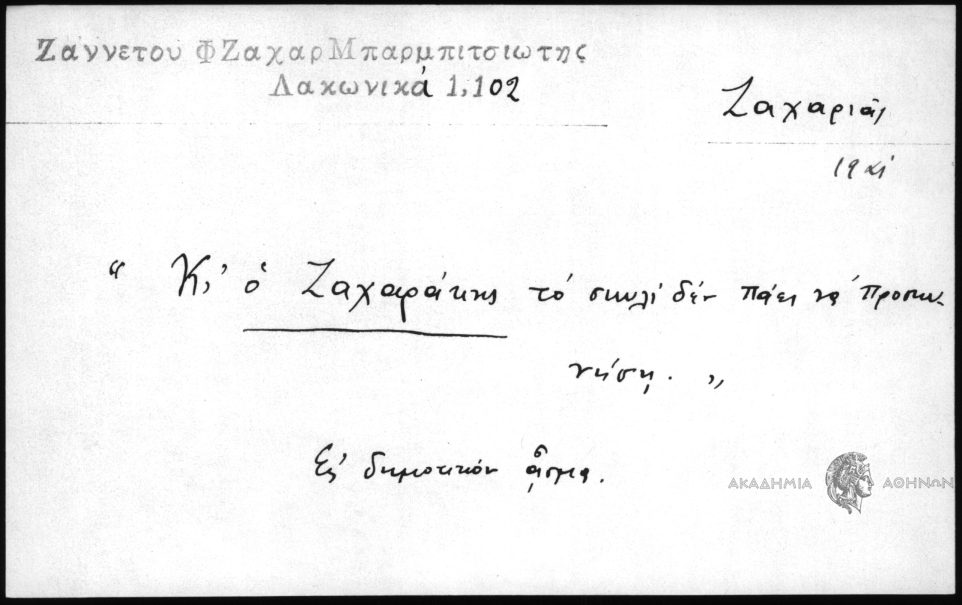 Ζαννετου Φ Ζαχαρ Μπαρμπιτσιωτης
Λακωνικά 1,102
Ζαχαριᾶς
"Κι' ὁ Ζαχαράκης τὸ σκυλὶ δὲν πάει νὰ προσκυ-
νήσῃ."
Εἰς δημοτικὸν ᾆσμα.
ΑΚΑΔΗΜΙΑ ΑΘΗΝΩΝ